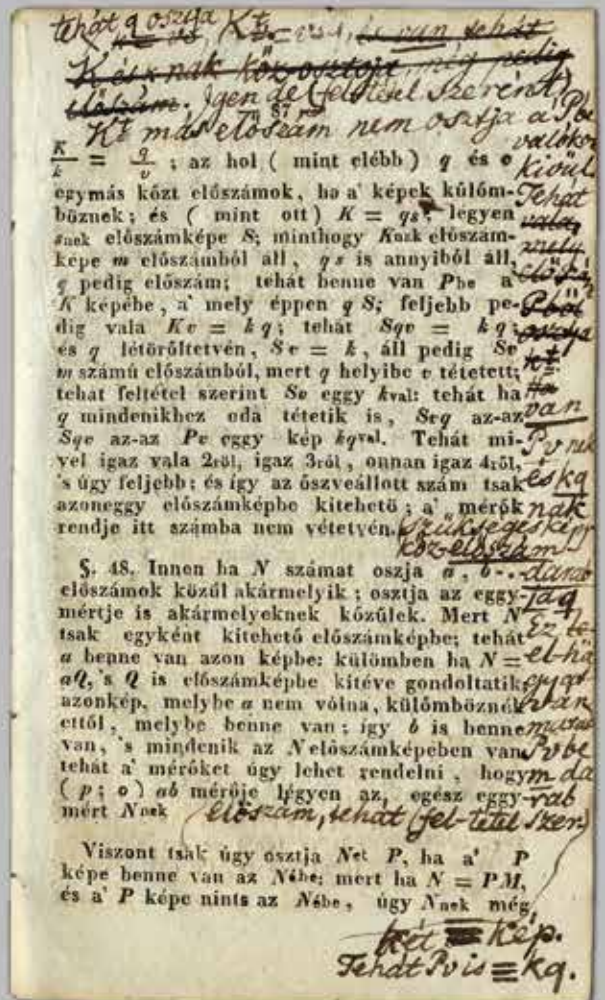 tehát q osztja Kt.
K és k nak köz osztója, még pedig
előszám. Igen de (feltétel szerént)
87
Kt más előszám nem osztja a' Pbe
K/k = q/v ; az hol ( mint elébb ) q és v
egymás közt előszámok, ha a' képek külöm-
böznek; és ( mint ott ) K = qs; légyen
snek előszámképe S; minthogy Knak előszám-
képe m előszámból áll, qs is annyiból áll,
q pedig előszám; tehát benne van Pbe a'
K képébe, a' mely éppen q S; feljebb pe-
dig vala Kv = kq; tehát Sqv = kq;
és q létöröltetvén, Sv = k, áll pedig Sv
m számú előszámból, mert q helyibe v tétetett;
tehát feltétel szerint Sv eggy kval: tehát ha
q mindenikhez oda tétetik is, Svq az-az
Sqv az-az Pv eggy kép kqval. Tehát mi-
vel igaz vala 2ről, igaz 3ról, onnan igaz 4ről,
's úgy feljebb: és így az öszveállott szám tsak
azoneggy előszámképbe kitehető; a' mérők
rendje itt számba nem vétetvén.
§. 48. Innen ha N számat oszja a, b...
előszámok közül akármelyik; osztja az eggy-
mértje is akármelyeknek közülek. Mert N
tsak egyként kitehető előszámképbe; tehát
a benne van azon képbe: külömben ha N =
aQ, 's Q is előszámképbe kitéve gondoltatik,
azonkép, melybe a nem vólna, külömböznék
ettől, melybe benne van; így b is benne
van, 's mindenik az Nelőszámképeben van,
tehát a' mérőket úgy lehet rendelni, hogy
( p; o ) ab mérője légyen az egész eggy-
mért Nnek
Viszont tsak úgy osztja Net P, ha a' P
képe benne van az Nébe; mert ha N = PM,
és a' P képe nints az Nébe, úgy Nnek még
valókon
kívül
Tehát
van
Pv nek
és kq
nak
szükségeskép
köz előszám
darab
Ez
van
Pvbe
m da
rab
előszám, tehát (fel-tétel szer.)
két kép.
Tehát Pv is ≡ kq.